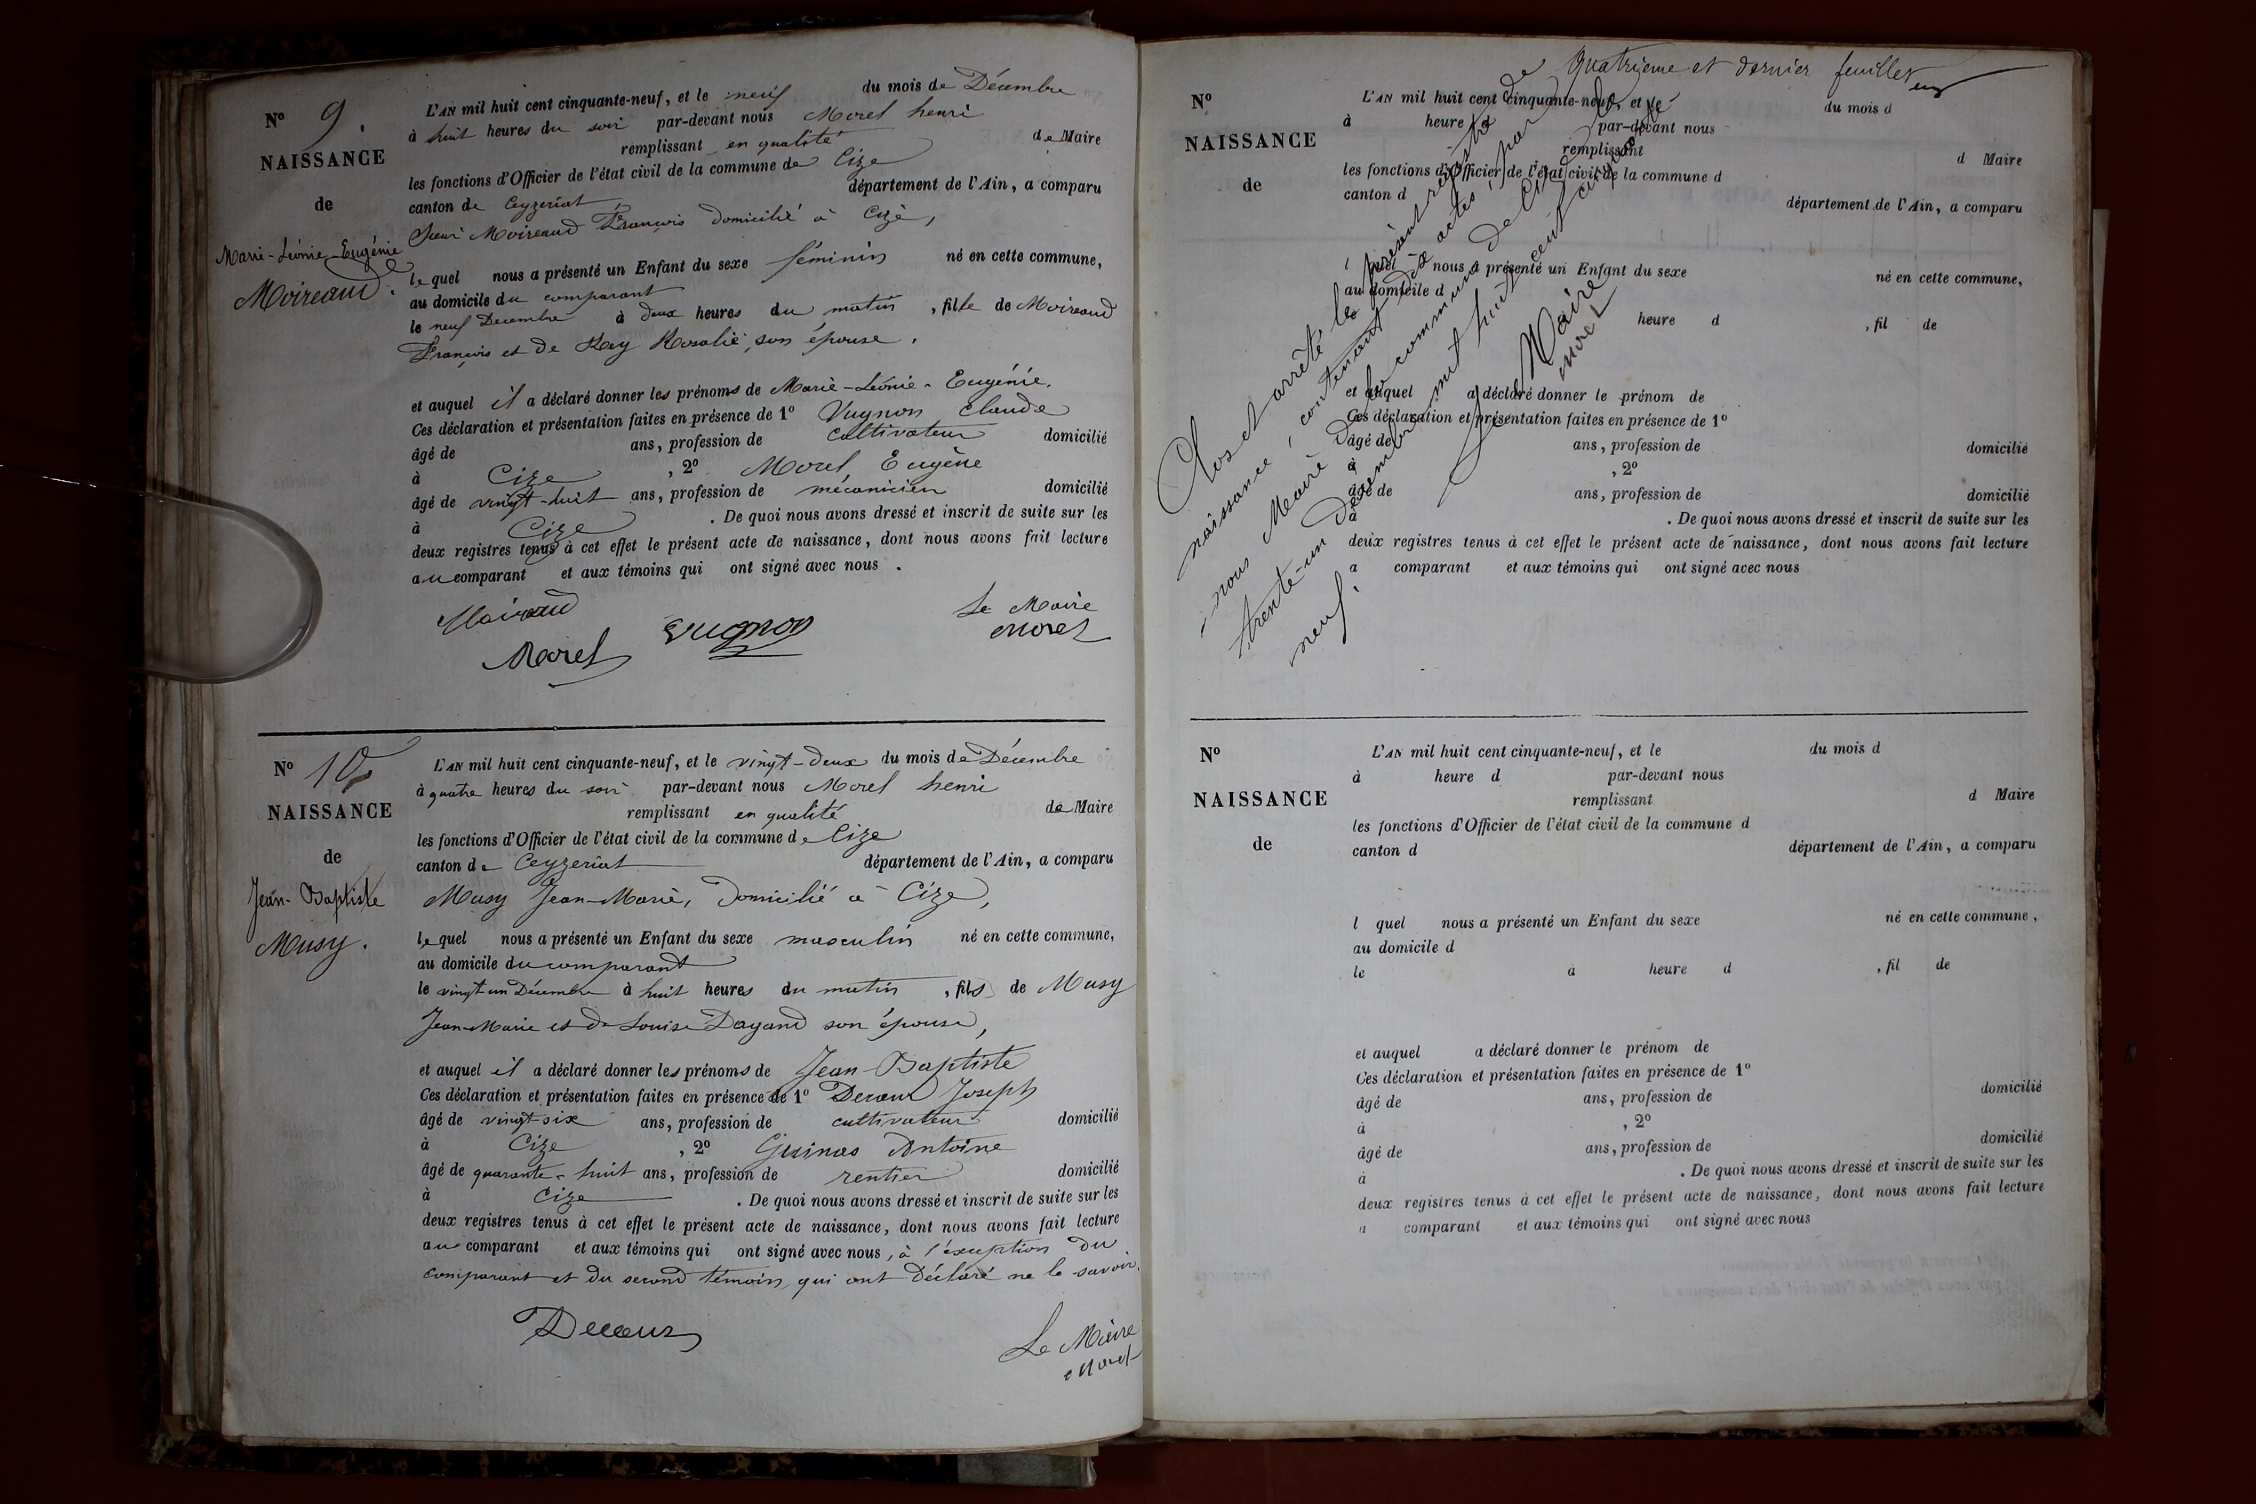 N° 9.
NAISSANCE
de
Marie-Léonie-Eugénie
Moireaud.
L'AN mil huit cent cinquante-neuf, et le neuf du mois de Décembre
à huit heures du soir par-devant nous Morel henri
remplissant en qualité de Maire
les fonctions d'Officier de l'état civil de la commune de Cize
canton de Ceyzeriat département de l'Ain, a comparu
Moireaud François domicilié à Cize,
lequel nous a présenté un Enfant du sexe féminin né en cette commune,
au domicile du comparant
le neuf Décembre à deux heures du matin, fille de Moireaud
François et de Rey Rosalie, son épouse.
et auquel il a déclaré donner les prénoms de Marie-Léonie-Eugénie.
Ces déclaration et présentation faites en présence de 1° Vugnon Claude
âgé de ans, profession de cultivateur domicilié
à Cize, 2° Morel Eugène
âgé de vingt-huit ans, profession de mécanicien domicilié
à Cize. De quoi nous avons dressé et inscrit de suite sur les
deux registres tenus à cet effet le présent acte de naissance, dont nous avons fait lecture
au comparant et aux témoins qui ont signé avec nous.
Moireaud
Morel Vugnon
Le Maire
Morel
N° 10
NAISSANCE
de
Jean-Baptiste
Musy.
L'AN mil huit cent cinquante-neuf, et le vingt-deux du mois de Décembre
à quatre heures du soir par-devant nous Morel henri
remplissant en qualité de Maire
les fonctions d'Officier de l'état civil de la commune de Cize
canton de Ceyzeriat département de l'Ain, a comparu
Musy Jean-Marie, domicilié à Cize,
lequel nous a présenté un Enfant du sexe masculin né en cette commune,
au domicile du comparant
le vingt un Décembre à huit heures du matin, fils de Musy
Jean-Marie et de Louise Dayand son épouse,
et auquel il a déclaré donner les prénoms de Jean-Baptiste
Ces déclaration et présentation faites en présence de 1° Decœur Joseph
âgé de vingt-six ans, profession de cultivateur domicilié
à Cize, 2° Guinas Antoine
âgé de quarante-huit ans, profession de rentier domicilié
à Cize. De quoi nous avons dressé et inscrit de suite sur les
deux registres tenus à cet effet le présent acte de naissance, dont nous avons fait lecture
au comparant et aux témoins qui ont signé avec nous, à l'exception du
comparant et du second témoin, qui ont déclaré ne le savoir.
Decœur
Le Maire
Morel
Quatrième et dernier feuillet
N°
NAISSANCE
de
L'AN mil huit cent cinquante-neuf, et le du mois d
à heure d par-devant nous
remplissant d Maire
les fonctions d'Officier de l'état civil de la commune d
canton d département de l'Ain, a comparu
l quel nous a présenté un Enfant du sexe né en cette commune,
au domicile d
heure d , fil de
et auquel a déclaré donner le prénom de
Ces déclaration et présentation faites en présence de 1°
âgé de ans, profession de domicilié
à , 2°
âgé de ans, profession de domicilié
à . De quoi nous avons dressé et inscrit de suite sur les
deux registres tenus à cet effet le présent acte de naissance, dont nous avons fait lecture
a comparant et aux témoins qui ont signé avec nous
Clos et arrêté le présent registre de
naissance, contenant dix actes, par
nous Maire de la commune de Cize le
trente-un Décembre mil huit cent cinquante
neuf.
Le Maire
Morel
N°
NAISSANCE
de
L'AN mil huit cent cinquante-neuf, et le du mois d
à heure d par-devant nous
remplissant d Maire
les fonctions d'Officier de l'état civil de la commune d
canton d département de l'Ain, a comparu
l quel nous a présenté un Enfant du sexe né en cette commune,
au domicile d
le à heure d , fil de
et auquel a déclaré donner le prénom de
Ces déclaration et présentation faites en présence de 1°
âgé de ans, profession de domicilié
à , 2°
âgé de ans, profession de domicilié
à . De quoi nous avons dressé et inscrit de suite sur les
deux registres tenus à cet effet le présent acte de naissance, dont nous avons fait lecture
a comparant et aux témoins qui ont signé avec nous